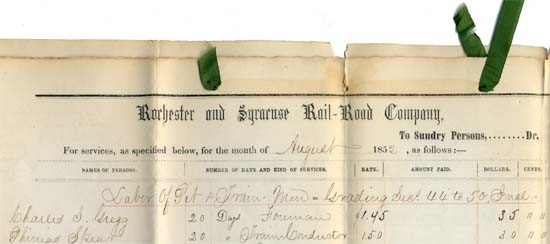 Rochester and Syracuse Rail-Road Company,
To Sundry Persons,........Dr.
For services, as specified below, for the month of August 1852, as follows:—
NAMES OF PERSONS. NUMBER OF DAYS AND KIND OF SERVICES. RATE. AMOUNT PAID. DOLLARS. CENTS.
Labor Of Pit & Train Men - Grading Sect 44 to 50 Incl.
Charles S. Gregg 20 Days Foreman 1.45 35 " "
20 " Train Conductor 150 30 " 0